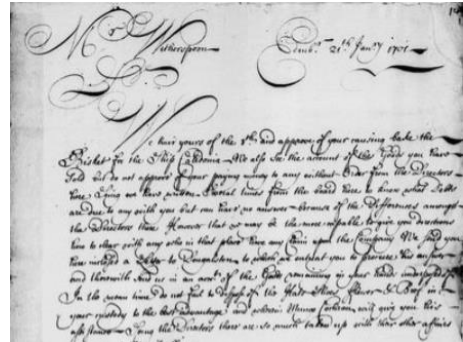 Mr Wetherspoon
Edinbr. 21th Janry 1701
Sir
We have yours of the 8th: and approve of your causing bake the
Bisket for the Ship Caledonia. We also see the account of the Goods you have
Sold but do not approve of your paying money to any without Order from the Directors
here. Being we have written Several times from this board here to know what Debts
are due to any with you but can have no answer because of the Differences amongst
the Directors there However that we may be the more capable to give you directions
how to clear with any who in that place have any claim upon the Company We send you
here inclosed a Letter to Dungalston to which we intreat you to procure his answer
and therewith send us in an accot. of the Goods remaining in your hands
In the mean time do not fail to dispose of the Flower & Beef in
your custody to the best advantage, and wherein Cochran will give you his
assistance. Being the Directors there are so much taken up with their other affairs